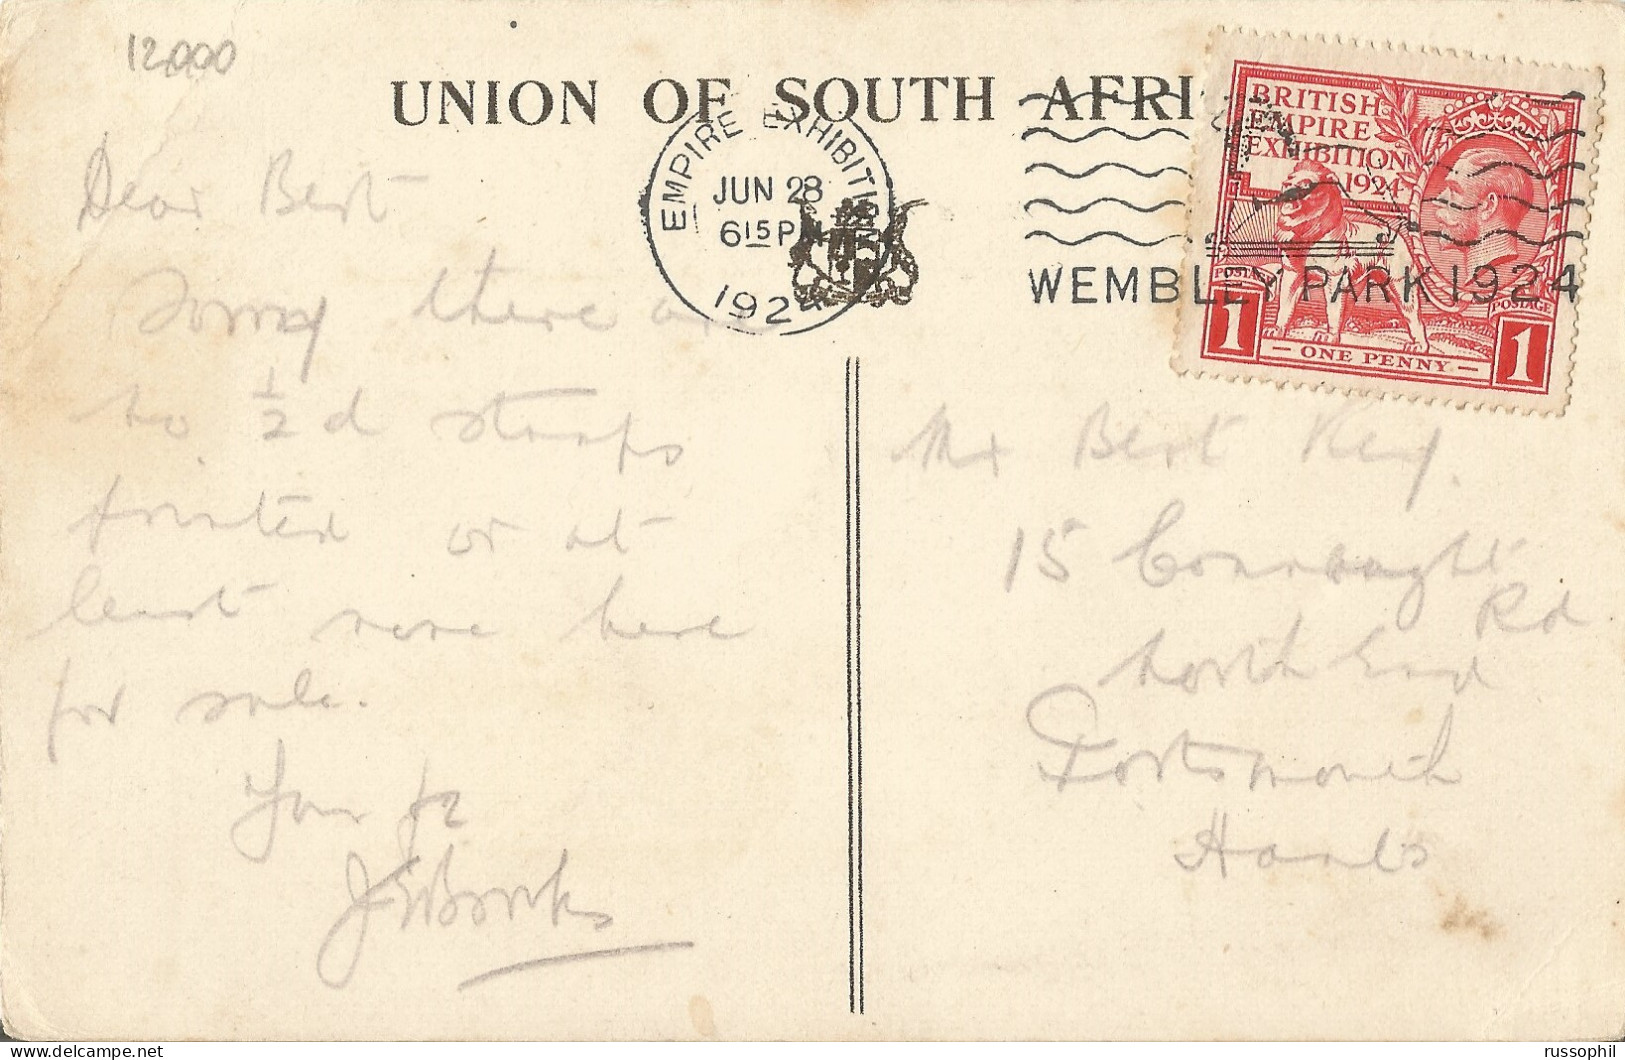 12.000
UNION OF SOUTH AFRI
EMPIRE EXHIBITION
JUN 28
6 15 PM
1924
WEMBLEY PARK 1924
BRITISH
EMPIRE
EXHIBITION
1924
POSTAGE
POSTAGE
1
ONE PENNY
1
Dear Bert
Sorry there are
no ½ d stamps
printed or at
least none here
for sale.
Your
Mr Bert Key.
15 Connaught
Rd
North End
Portsmouth
Hants
russophil